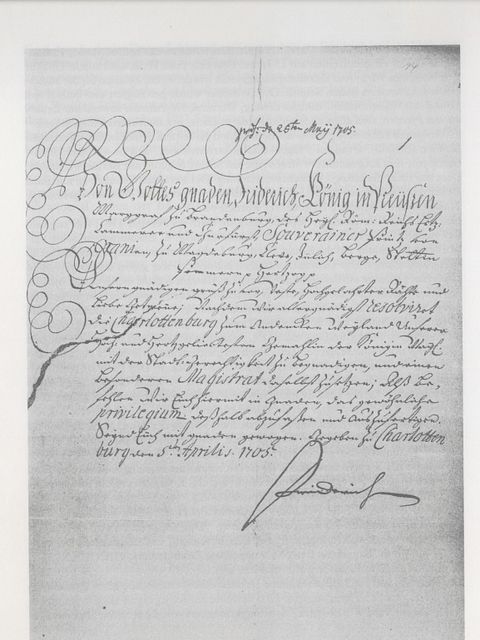 74
prs: d. 26ten Maÿ 1705.
Von Gottes gnaden, Friderich, König in Preußen
Marggraf zu Brandenburg, des Heyl: Röm: Reichs Ertz-
Cammerer und Churfürst, Souverainer Printz von
Oranien, zu Magdeburg, Cleve, Jülich, Berge, Stettin
Pommern p Hertzog p
Unsern gnädigen gruß zuvor, Veste, Hochgelahrter Räthe und
liebe getreue, Nachdem wir allergnädigst resolviret
die Charlottenburg zum andencken Weyland Unserer
Hoch- und Hertzgeliebtesten Gemahlin der Königin Maÿt:
mit der Stadt-Gerechtigkeit zu begnadigen, und einen
besonderen Magistrat daselbst zu setzen; Alß be-
fehlen wir Euch hiermit in Gnaden, das gewöhnliche
privilegium deßhalb abzufaßen und auszufertigen.
Seynd Euch mit gnaden gewogen. Gegeben zu Charlotten
burg den 5ten Aprilis. 1705.
Friderich